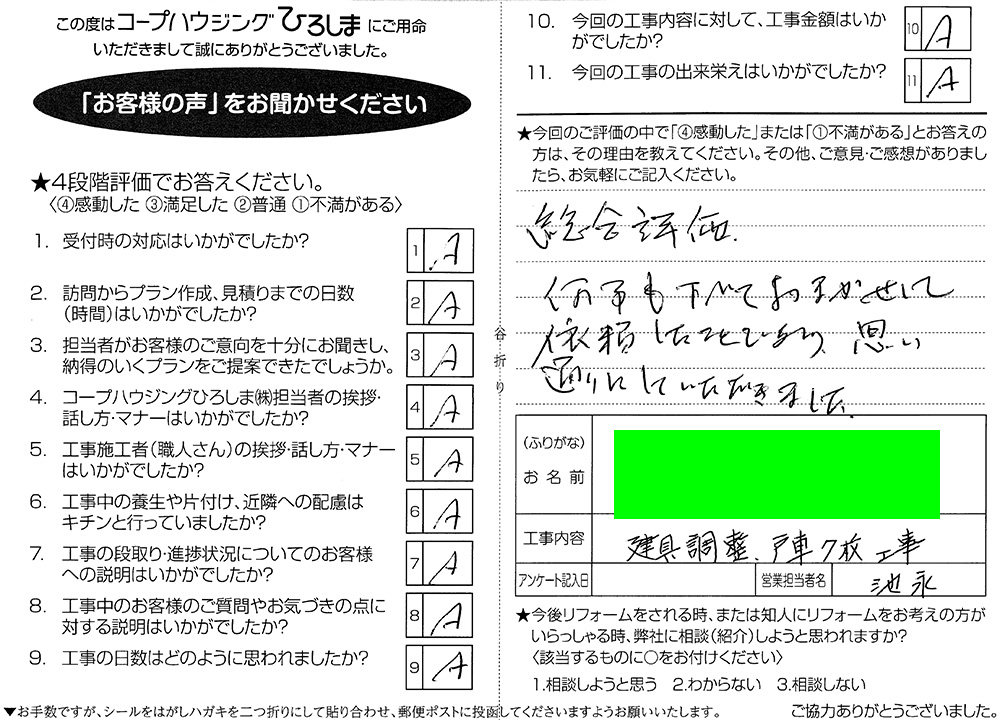 この度はコープハウジングひろしまにご用命
いただきまして誠にありがとうございました。
「お客様の声」をお聞かせください
★4段階評価でお答えください。
〈④感動した ③満足した ②普通 ①不満がある〉
1. 受付時の対応はいかがでしたか?
1 A
2. 訪問からプラン作成、見積りまでの日数
(時間)はいかがでしたか?
2 A
3. 担当者がお客様のご意向を十分にお聞きし、
納得のいくプランをご提案できたでしょうか。
3 A
4. コープハウジングひろしま㈱担当者の挨拶・
話し方・マナーはいかがでしたか?
4 A
5. 工事施工者(職人さん)の挨拶・話し方・マナー
はいかがでしたか?
5 A
6. 工事中の養生や片付け、近隣への配慮は
キチンと行っていましたか?
6 A
7. 工事の段取り・進捗状況についてのお客様
への説明はいかがでしたか?
7 A
8. 工事中のお客様のご質問やお気づきの点に
対する説明はいかがでしたか?
8 A
9. 工事の日数はどのように思われましたか?
9 A
▼お手数ですが、シールをはがしハガキを二つ折りにして貼り合わせ、郵便ポストに投函してくださいますようお願いいたします。
谷折り
10. 今回の工事内容に対して、工事金額はいか
がでしたか?
10 A
11. 今回の工事の出来栄えはいかがでしたか?
11 A
★今回のご評価の中で「④感動した」または「①不満がある」とお答えの
方は、その理由を教えてください。その他、ご意見・ご感想がありまし
たら、お気軽にご記入ください。
総合評価.
何事も下べておまかせして
依頼したことでいあり、思い
通りにしていただきました.
(ふりがな)
お名前
工事内容
建具調整、戸車7枚工事
アンケート記入日
営業担当者名
池永
★今後リフォームをされる時、または知人にリフォームをお考えの方が
いらっしゃる時、弊社に相談(紹介)しようと思われますか?
〈該当するものに○をお付けください〉
1.相談しようと思う 2.わからない 3.相談しない
ご協力ありがとうございました。